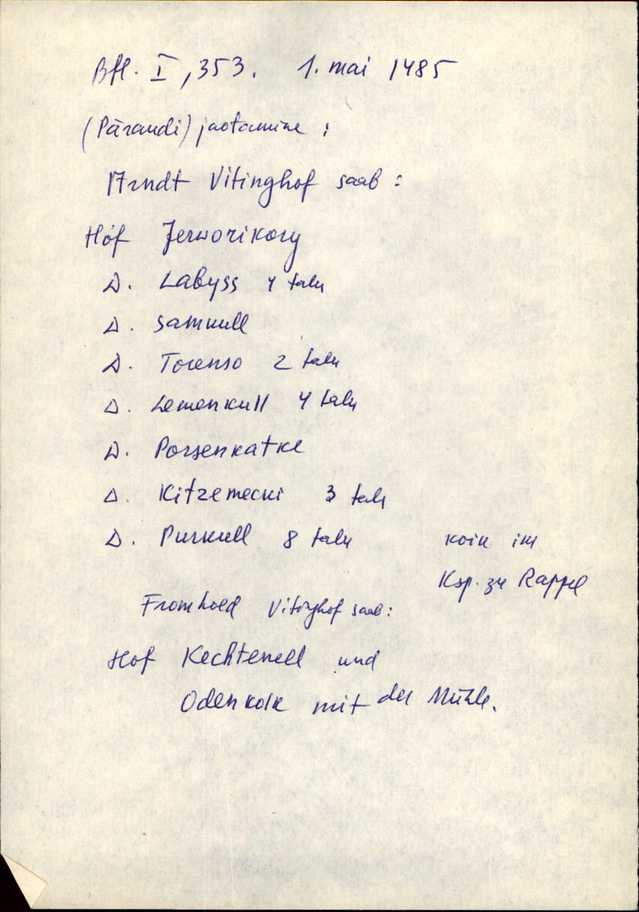 Bfl. I, 353. 1. mai 1485
(Pärandi) jaotamine :
Arndt Vitinghof saab :
Hof Jerworikory
D. Labyss 4 talu
D. Samkull
D. Torenso 2 talu
D. Lemenkull 4 talu
D. Porsenkatke
D. Kitzemecki 3 talu
D. Purkull 8 talu kõik im
Ksp. zu Rappel
Fromhold Vitinghof saab:
Hof Kechtenell und
Odenkolk mit der Mühle.